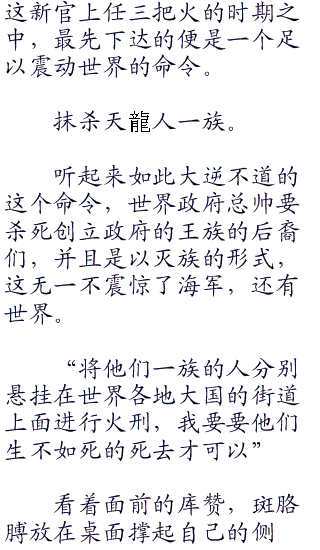 这新官上任三把火的时期之
中，最先下达的便是一个足
以震动世界的命令。
抹杀天龍人一族。
听起来如此大逆不道的
这个命令，世界政府总帅要
杀死创立政府的王族的后裔
们，并且是以灭族的形式，
这无一不震惊了海军，还有
世界。
“将他们一族的人分别
悬挂在世界各地大国的街道
上面进行火刑，我要要他们
生不如死的死去才可以”
看着面前的库赞，斑胳
膊放在桌面撑起自己的侧